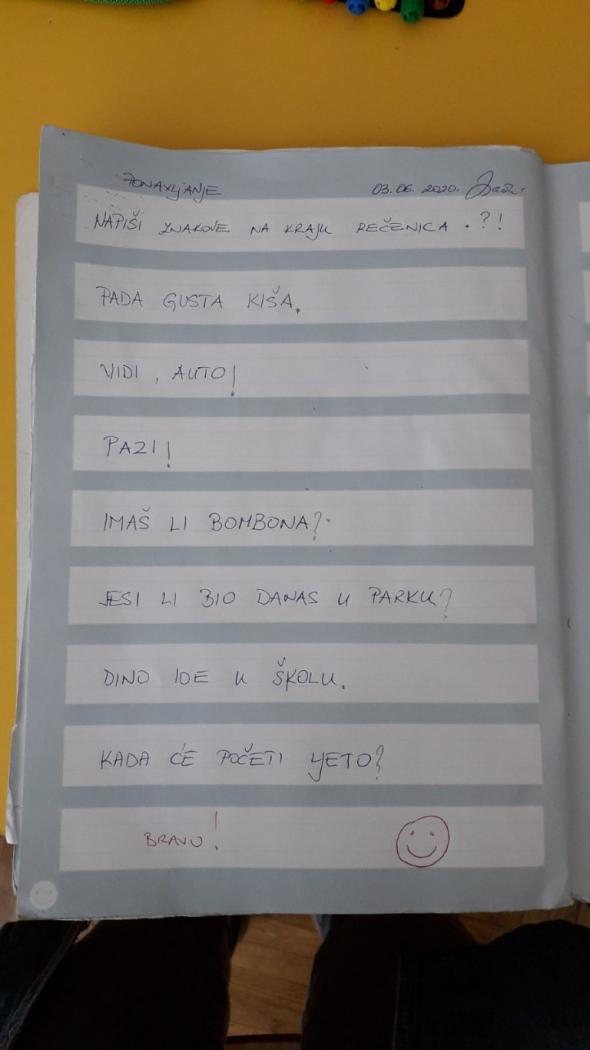 PONAVLJANJE 03.06.2020.
NAPIŠI ZNAKOVE NA KRAJU REČENICA . ? !
PADA GUSTA KIŠA.
VIDI, AUTO!
PAZI!
IMAŠ LI BOMBONA?
JESI LI BIO DANAS U PARKU?
DINO IDE U ŠKOLU.
KADA ĆE POČETI LJETO?
BRAVO!